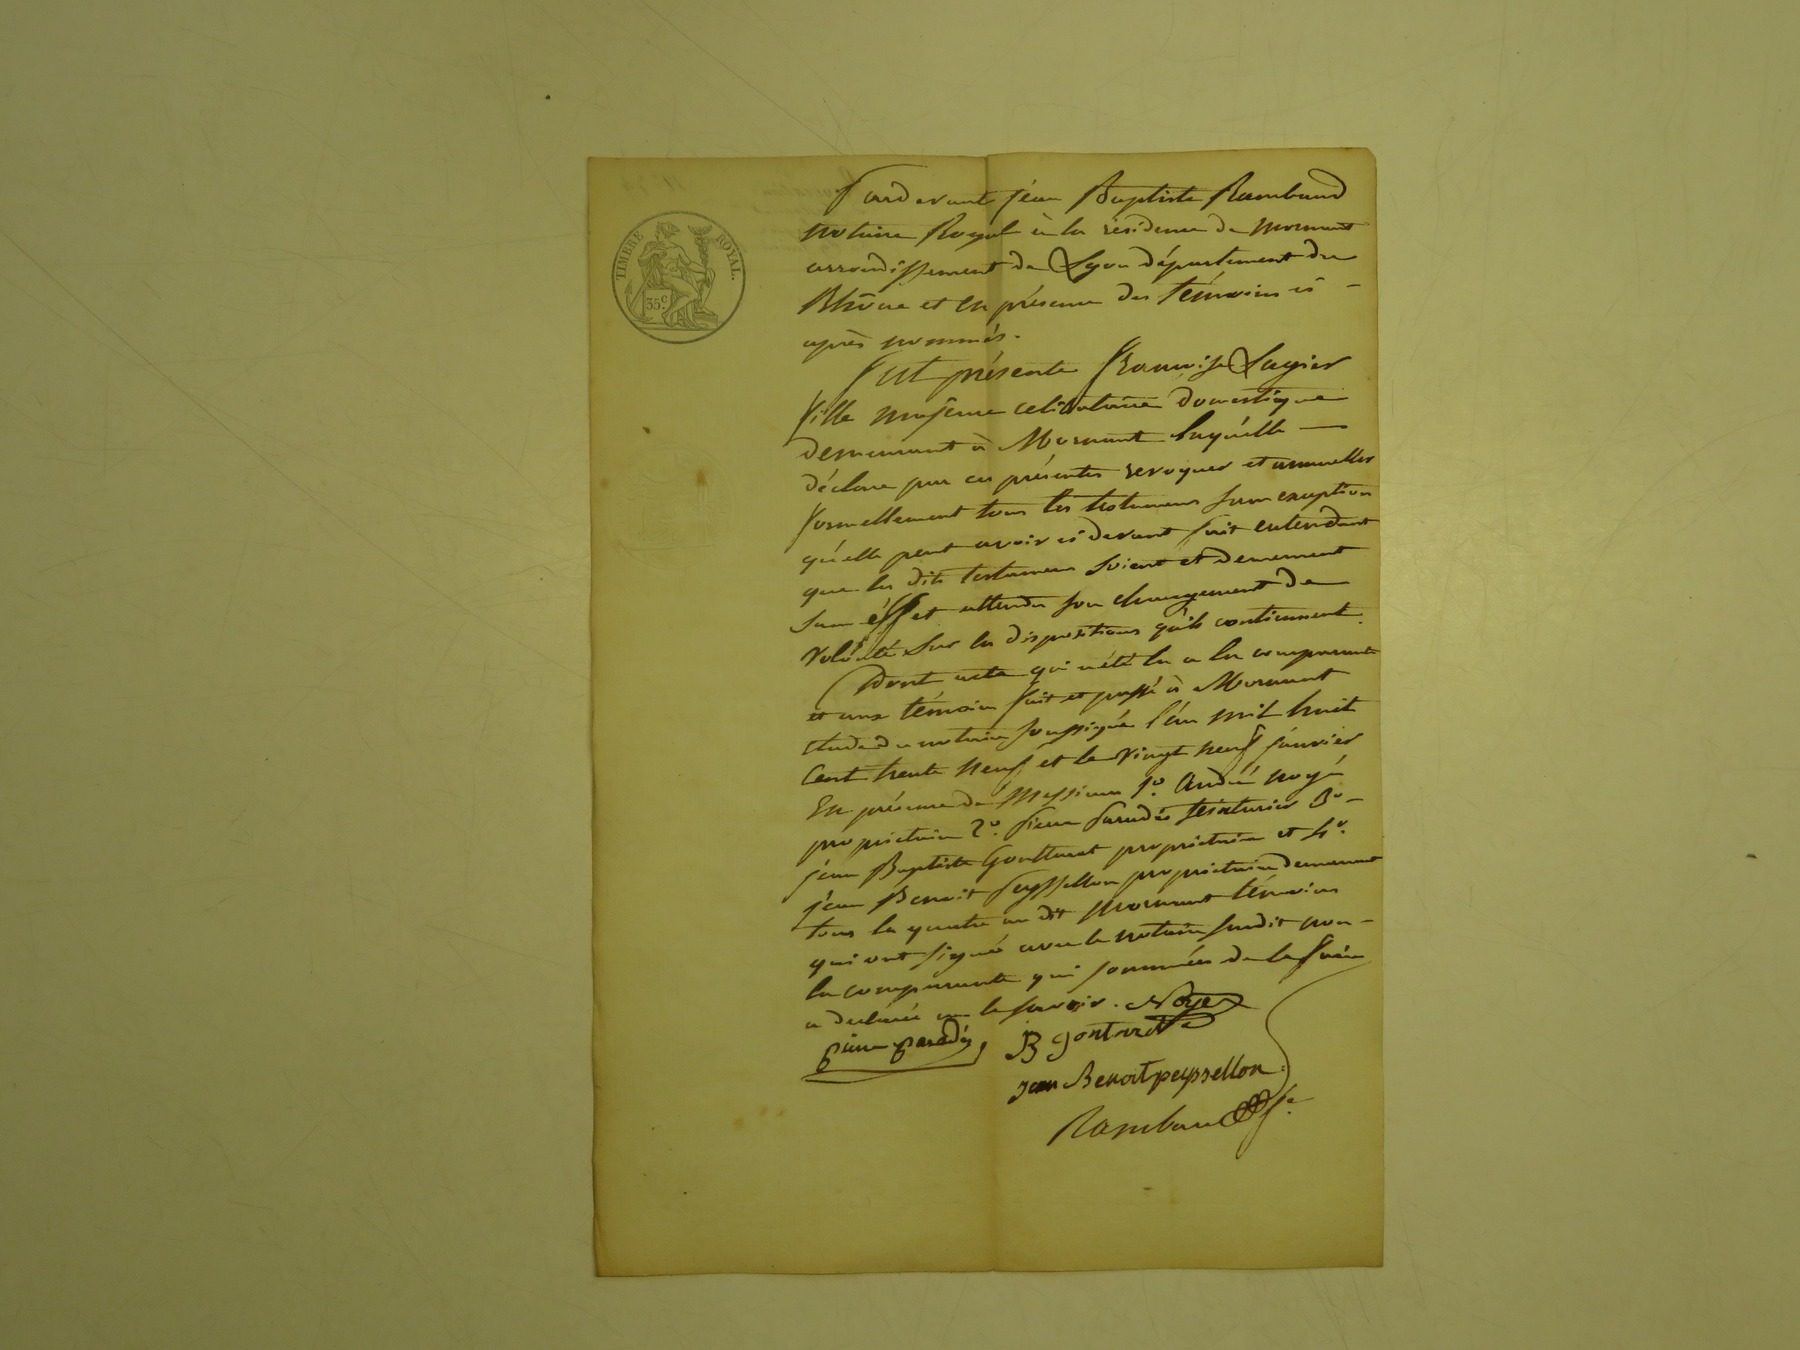 TIMBRE ROYAL.
35 c.
Pardevant jéan Baptiste Rambaud
notaire Royal à la résidence de mornant
arrondissement de Lyon département du
Rhône et en présence des témoins ci -
après nommés.
Fut présente françoise Lagier
fille majeure celibataire domestique
demeurant à Mornant laquélle —
déclare par ces présentes revoquer et annuller
formellement tous les testamens sans exception
qu'elle peut avoir ci devant fait entendant
que les dits testamens soient et demeurent
sans éffet attendu son changement de
volonté sur les dispositions qu'ils contiennent.
Dont acte qui a été lu a la comparante
et aux témoins fait et passé à Mornant
étude du notaire soussigné l'an mil huit
cent trente neuf et le vingt neuf janvier
En présence de Messieurs 1º. André noyé
proprietaire 2º. pierre paradis teinturier 3º -
jean Baptiste Gonttard proprietaire et 4º.
jean Benoit peyssellon proprietaire demeurant
tous les quatre au dit Mornant témoins
qui ont signé avec le notaire susdit non -
la comparante qui sommée de le faire
a declaré ne le savoir. Noyé
pierre paradis
B gontard
jean Benoit peyssellon
Rambaud